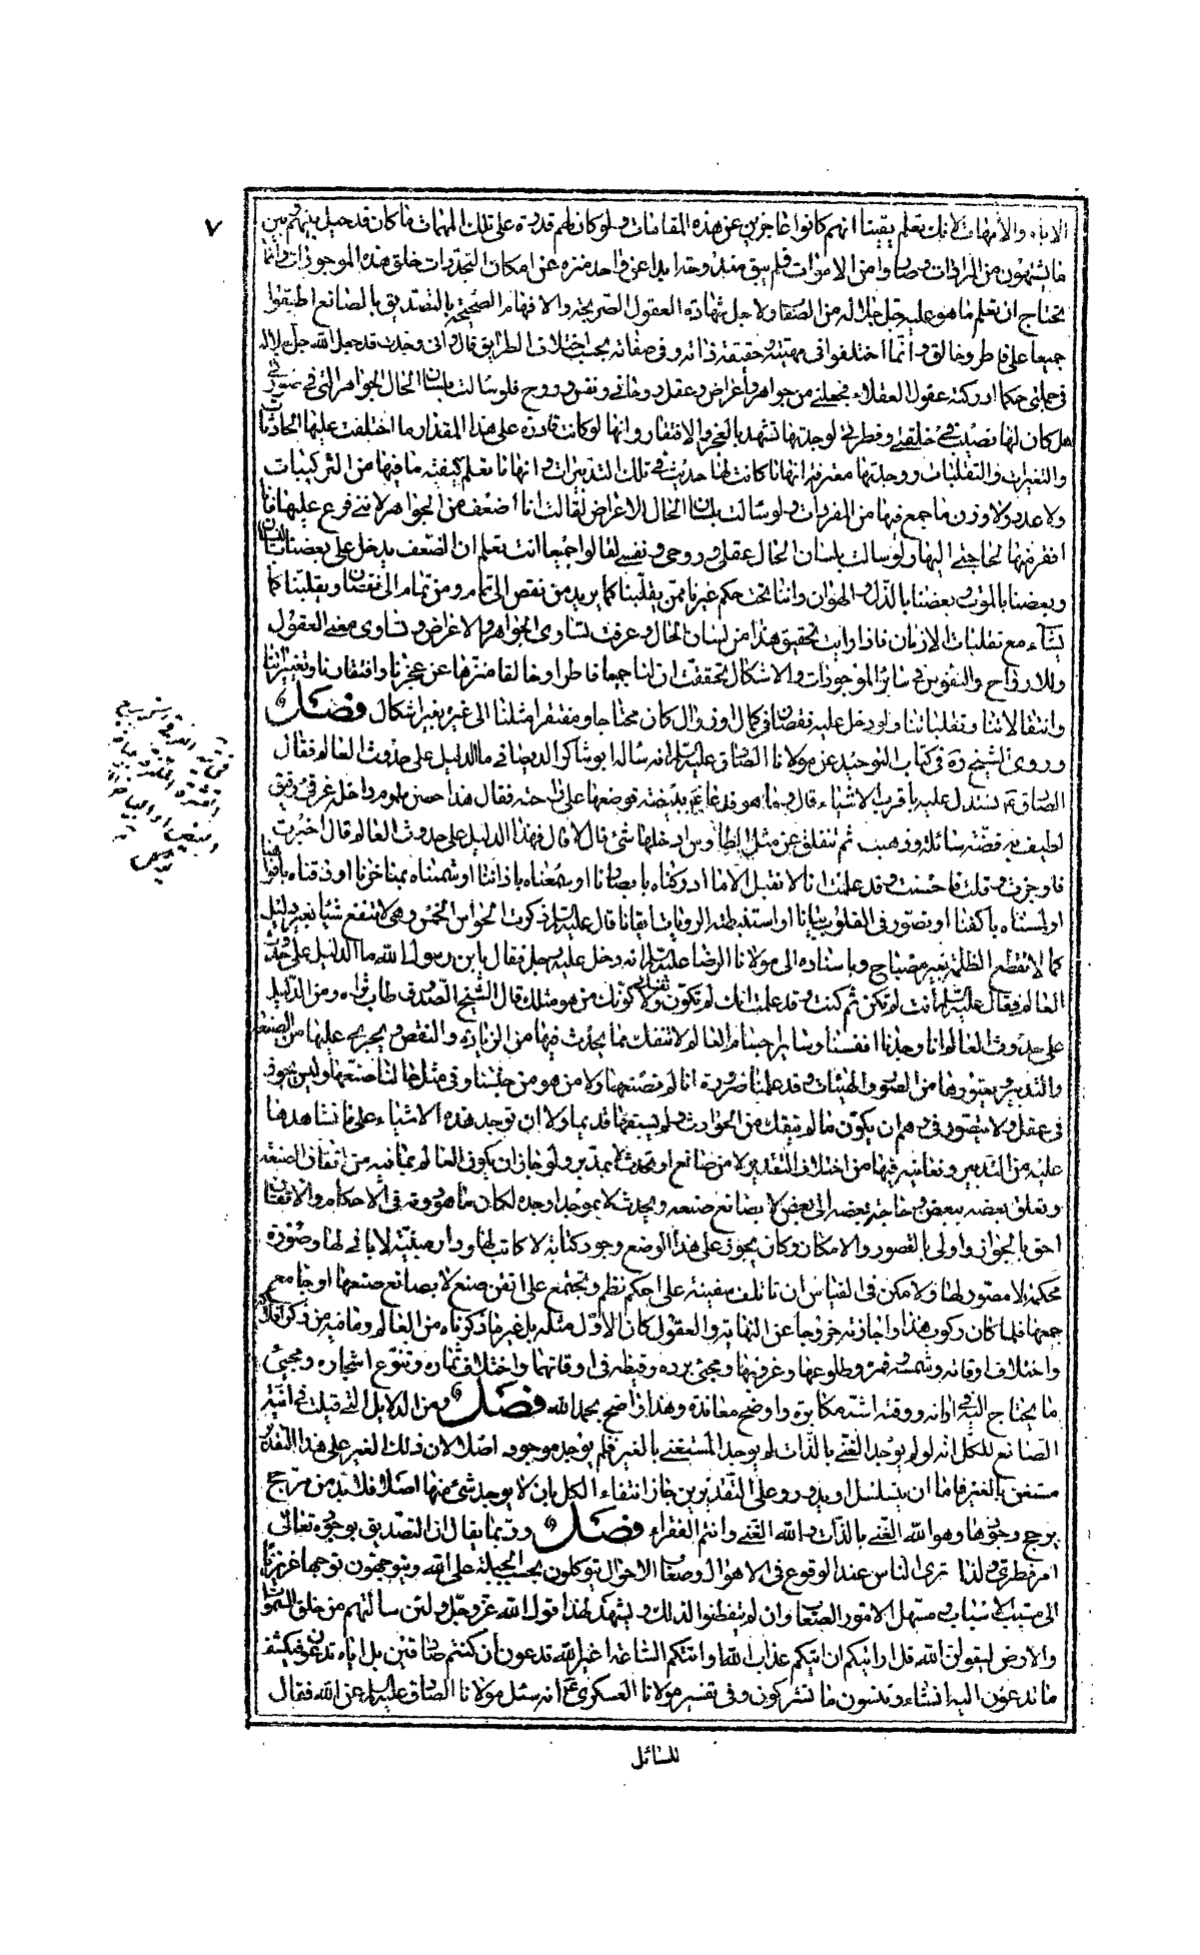 ٧
الاباء والأمهات لانك تعلم يقينا انهم كانوا عاجزين عن هذه المقامات ولو كان لهم قدرة على تلك المهمات ما كان قد حيل بينهم وبين
ما يشتهون من المرادات وصاروا من الاموات فلم يبق مندوحة ابدا عن واحد منزه عن امكان التجددات خلق هذه الموجودات وانما
يحتاج ان تعلم ما هو عليه جل جلاله من الصفات ولاجل شهادة العقول الصريحة والافهام الصحيحة بالتصديق بالصانع اطبقوا
جميعا على فاطر وخالق وانما اختلفوا فى مهيته وحقيقة ذاته وفى صفاته بحسب اختلاف الطرايق قال وانى وجدت قد جعل الله جل جلاله
فى جملتى حكما ادركته عقول العقلاء فجعلنى من جواهر وأعراض وعقل روحانى ونفس وروح فلو سالت بلسان الحال الجواهر التى فى صورتى
هل كان لها نصيب فى خلقى وفطرتى لوجدتها تشهد بالعجز والافتقار وانها لو كانت قادرة على هذا المقدار ما اختلفت عليها الحادثات
والتغيرات والتقلبات ووجدتها معترفة انها ما كانت لها حديث فى تلك التدبيرات وانها ما تعلم كيفية ما فيها من التركيبات
ولا عدد ولا وزن ما جمع فيها من المفردات ولو سالت بلسان الحال الاعراض لقالت انا اضعف من الجواهر لاننى فرع عليها فانا
افقر منها لحاجتى اليها ولو سالت بلسان الحال عقلى وروحى ونفسى لقالوا جميعا انت تعلم ان الضعف يدخل على بعضنا بالنسيان
وبعضنا بالموت وبعضنا بالذل والهوان واننا تحت حكم غيرنا ممن يقلبنا كما يريد من نقص الى تمام ومن تمام الى نقصان ويقلبنا كما
يشاء مع تقلبات الازمان فاذا رايت تحقيق هذا من لسان الحال وعرفت تساوى الجواهر والاعراض وتساوى معنى العقول
والارواح والنفوس فى سائر الموجودات والاشكال تحققت ان لنا جميعا فاطرا وخالقا منزها عن عجزنا وافتقارنا وتغيراتنا
وانتقالاتنا وتقلباتنا ولو دخل عليه نقصان فى كمال او زوال كان محتاجا ومفتقرا مثلنا الى غيره بغير اشكال فصل
وروى الشيخ ره فى كتاب التوحيد عن مولانا الصادق عليه السلام انه ساله ابو شاكر الديصانى ما الدليل على حدوث العالم فقال
الصادق ع نستدل عليه باقرب الاشياء قال وما هو فدعا ع ببيضة فوضعها على راحته فقال هذا حصن ملموم داخله غرقئ رقيق
لطيف به فضة سائلة وذهبة ثم تنفلق عن مثل الطاوس ادخلها شئ قال لا قال فهذا الدليل على حدوث العالم قال اخبرت
فاوجزت وقلت فاحسنت وقد علمت انا لا نقبل الا ما ادركناه بابصارنا او سمعناه باذاننا او شممناه بمناخرنا او ذقناه بافواهنا
او لمسناه باكفنا او تصور فى القلوب بيانا او استنبطته الرويات ايقانا قال عليه السلام ذكرت الحواس الخمس وهى لا تنفع شيئا بغير دليل
كما لا تقطع الظلمة بغير مصباح وباسناده الى مولانا الرضا عليه السلام انه دخل عليه رجل فقال يا بن رسول الله ما الدليل على حدوث
العالم فقال عليه السلام انت لم تكن ثم كنت وقد علمت انك لم تكون نفسك ولا كونك من هو مثلك قال الشيخ الصدوق طاب ثراه ومن الدليل
على حدوث العالم انا وجدنا انفسنا وسائر اجسام العالم لا تنفك مما يحدث فيها من الزيادة والنقص ويجرى عليها من الصنعة
والتدبير ويعتورها من الصور والهيئات وقد علمنا ضرورة انا لم نصنعها ولا من هو من جنسنا وفى مثل حالنا صنعها وليس يجوز
فى عقل ولا يتصور فى وهم ان يكون ما لم ينفك من الحوادث ولم يسبقها قديما ولا ان توجد هذه الاشياء على ما نشاهدها
عليه من التدبير ونعاينه فيها من اختلاف التقدير لا من صانع او تحدث لا بمدبر ولو جاز ان يكون العالم بما فيه من اتقان الصنعة
وتعلق بعضه ببعض وحاجة بعضه الى بعض لا بصانع صنعه ويحدث لا بموجد اوجده لكان ما هو دونه فى الاحكام والاتقان
احق بالجواز واولى بالتصور والامكان وكان يجوز على هذا الوضع وجود كتابة لا كاتب لها ودار مبنية لا بانى لها وصورة
محكمة لا مصور لها ولا مكن فى القياس ان تاتلف سفينة على احكم نظم وتجتمع على اتقن صنع لا بصانع صنعها او جامع
جمعها فلما كان ركوب هذا واجازته خروجا عن النهاية والعقول كان الاول مثله بل غير ما ذكرناه من العالم وما فيه من ذكر افلاكه
واختلاف اوقاته وشمسه وقمره وطلوعها وغروبها ومجئ برده وقيظه فى اوقاتهما واختلاف ثماره وتنوع اشجاره ومجئ
ما يحتاج اليه فى اوانه ووقته اشد مكابرة واوضح معاندة وهذا واضح بحمد الله فصل ومن الدلايل التى قيلت فى انية
الصانع للكل انه لو لم يوجد الغنى بالذات لم يوجد المستغنى بالغير فلم يوجد موجود اصلا لان ذلك الغير على هذا التقدير
مستغن بالغير فاما ان يتسلسل او يدور وعلى التقديرين جاز انتفاء الكل بان لا يوجد شئ منها اصلا فلا بد من مرجح
يرجح وجودها وهو الله الغنى بالذات والله الغنى وانتم الفقراء فصل وربما يقال ان التصديق بوجوده تعالى
امر فطرى ولذا ترى الناس عند الوقوع فى الاهوال وصعاب الاحوال يتوكلون بحسب الجبلة على الله ويتوجهون توجها غريزيا
الى مسبب الاسباب ومسهل الامور الصعاب وان لم يتفطنوا لذلك ويشهد لهذا قول الله عز وجل ولئن سالتهم من خلق السموات
والارض ليقولن الله قل ارايتكم ان اتيكم عذاب الله او اتتكم الساعة اغير الله تدعون ان كنتم صادقين بل اياه تدعون فيكشف
ما تدعون اليه ان شاء وتنسون ما تشركون وفى تفسير مولانا العسكرى ع انه سئل مولانا الصادق عليه السلام عن الله فقال
للسائل